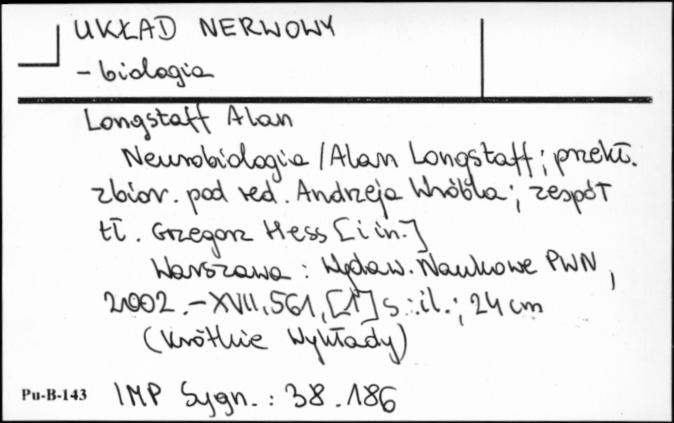 UKŁAD NERWOWY
- biologia
Longstaff Alan
Neurobiologia / Alan Longstaff ; przekł.
zbior. pod red. Andrzeja Wróbla ; zespół
tł. Grzegorz Hess [i in.]
Warszawa : Wydaw. Naukowe PWN,
2002. - XVII, 561, [1] s. : il. ; 24 cm
(Krótkie Wykłady)
Pu-B-143 IMP Sygn. : 38.186